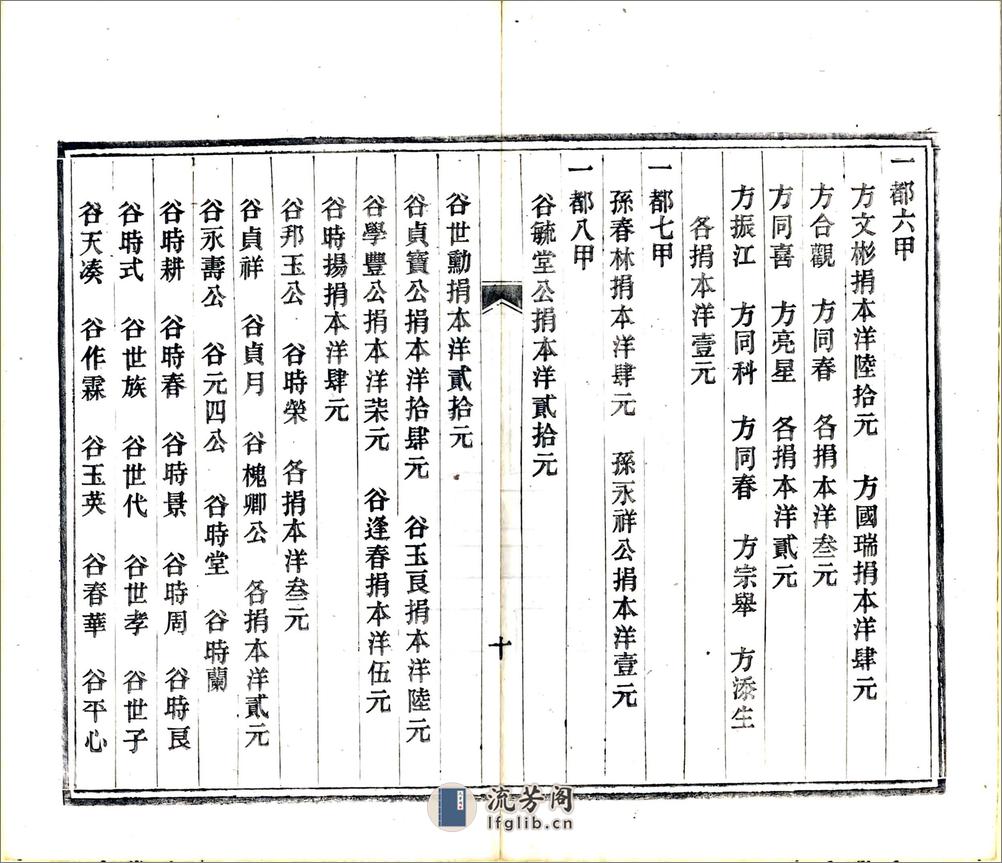 一都六甲
方文彬捐本洋陸拾元　方國瑞捐本洋肆元
方台觀　方同春　各捐本洋叁元
方同喜　方亮星　各捐本洋貳元
方振江　方同科　方同春　方宗舉　方添生
各捐本洋壹元
一都七甲
孫春林捐本洋肆元　孫永祥公捐本洋壹元
一都八甲
谷毓堂公捐本洋貳拾元
十
谷世勳捐本洋貳拾元
谷貞寶公捐本洋拾肆元　谷玉良捐本洋陸元
谷學豐公捐本洋柒元　谷逢春捐本洋伍元
谷時揚捐本洋肆元
谷邦玉公　谷時榮　各捐本洋叁元
谷貞祥　谷貞月　谷槐卿公　各捐本洋貳元
谷永壽公　谷元四公　谷時堂　谷時蘭
谷時耕　谷時春　谷時景　谷時周　谷時良
谷時式　谷世族　谷世代　谷世孝　谷世子
谷天湊　谷作霖　谷玉英　谷春華　谷平心
流芳阁
lfglib.cn